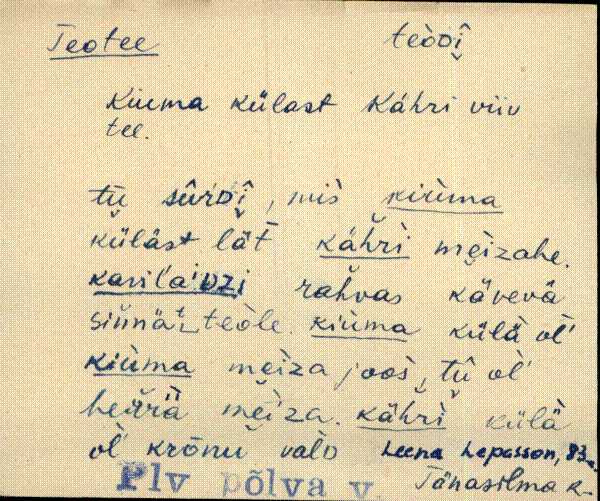 Teotee teòᴅî̬
Kiuma külast Kähri viiv
tee.
tṷ̄ sūrᴅî̬, mis kiùma
küläst lät̄ kä̬hrì me̬ìzahe.
kavila'ᴜzi rahvas kävevä
sinnä teòle. kiùma külä ol'
kiùma me̬ìza joos, tṷ̄ ol'
herrä me̬ìza. kä̬hrì külä
ol' krōnu valᴅ Leena Lepasson, 83 a.
Plv põlva v. Tänasilma k.